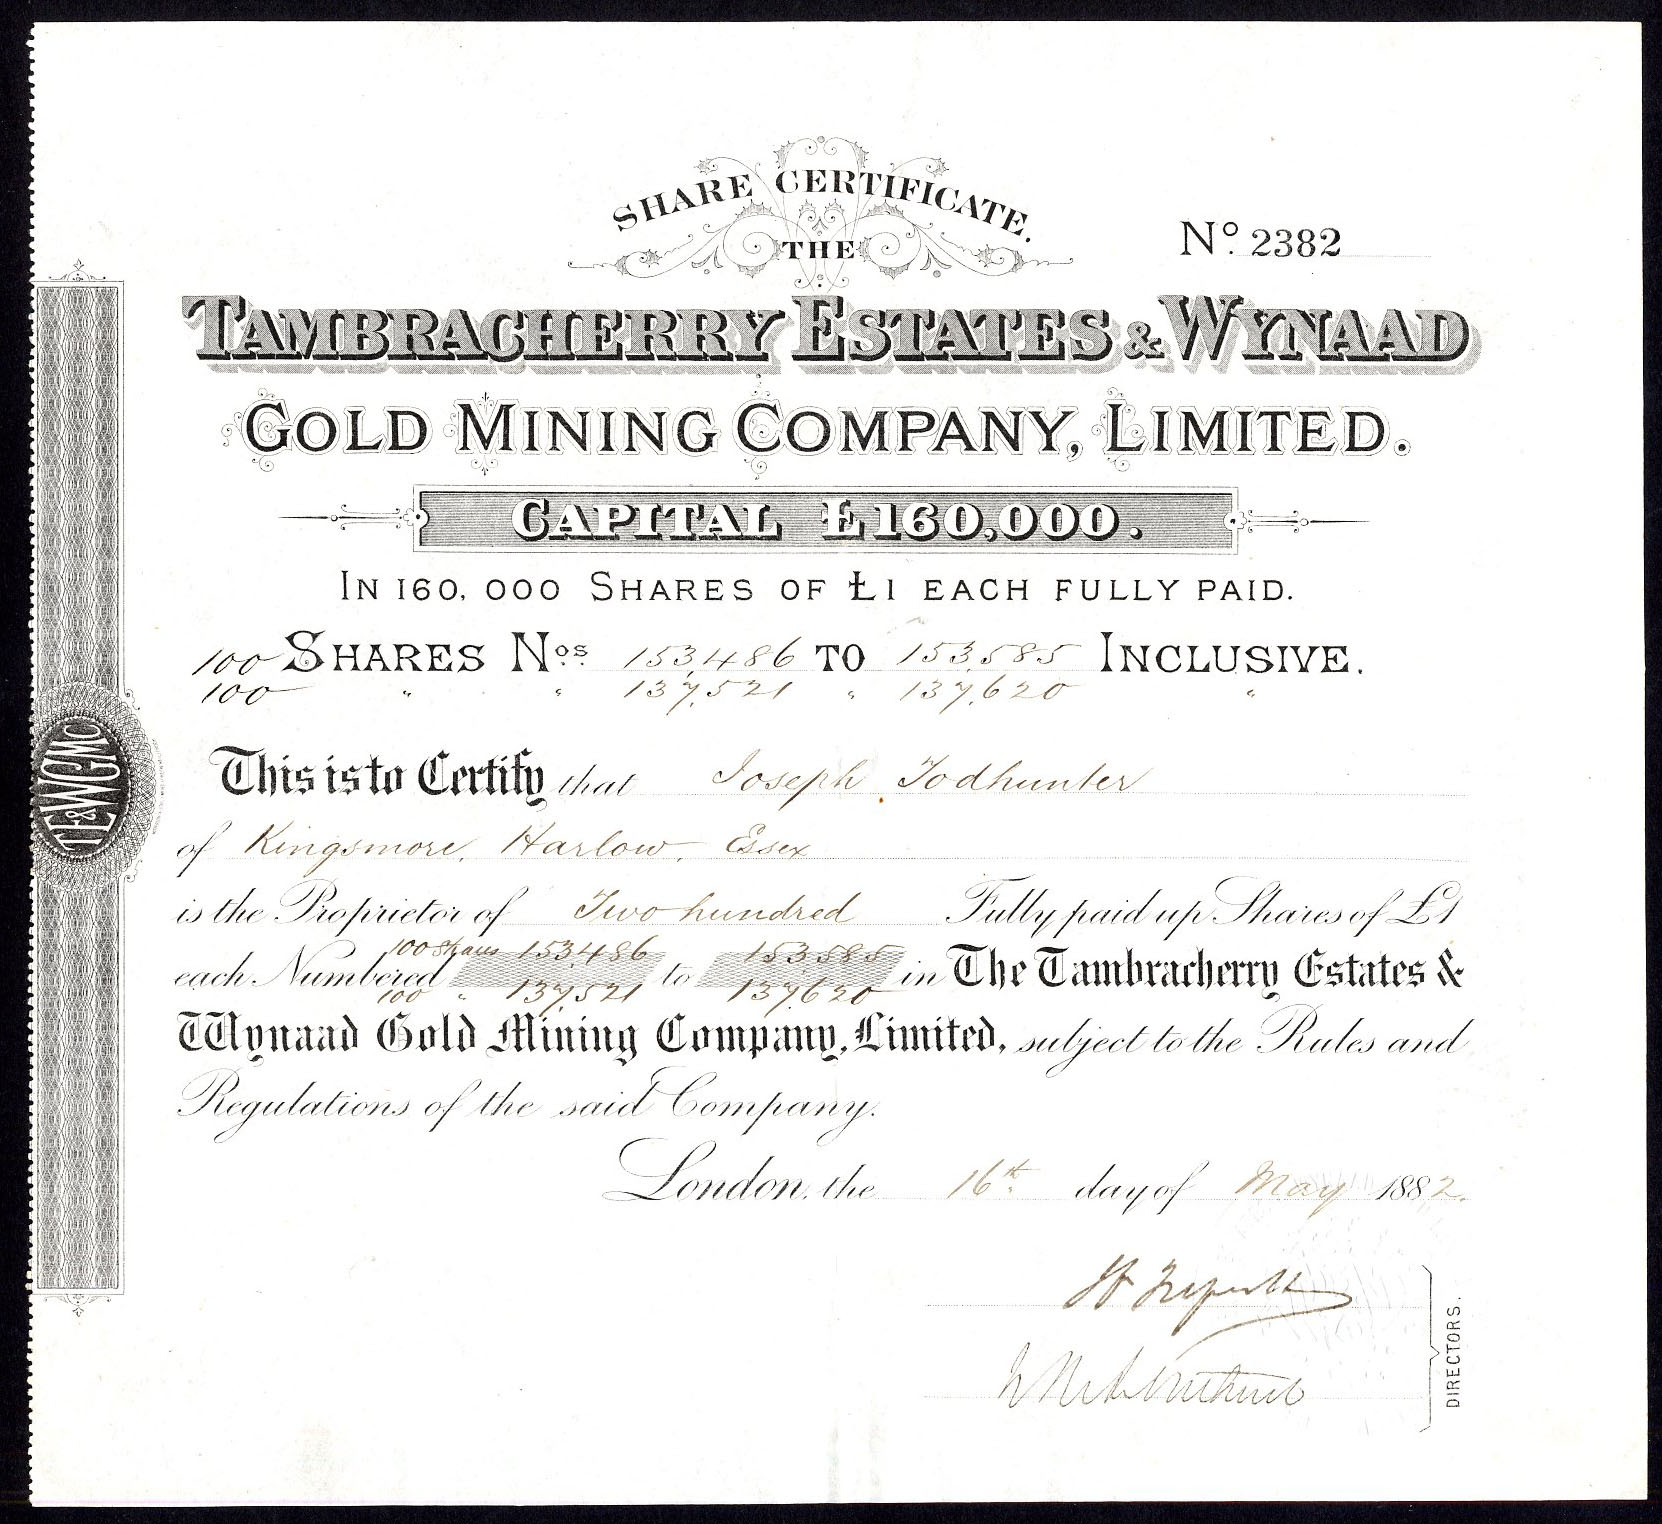 SHARE CERTIFICATE.
THE
No. 2382
TAMBRACHERRY ESTATES & WYNAAD
GOLD MINING COMPANY, LIMITED.
CAPITAL £160,000.
IN 160,000 SHARES OF £1 EACH FULLY PAID.
100 SHARES Nos. 153,486 TO 153,585 INCLUSIVE.
100 " " 137,521 " 137,620 "
This is to Certify that Joseph Todhunter
of Kingsmore, Harlow, Essex
is the Proprietor of Two hundred Fully paid up Shares of £1
100 Shares 153486 153585
each Numbered to in The Tambracherry Estates &
100 " 137,521 137620
Wynaad Gold Mining Company, Limited, subject to the Rules and
Regulations of the said Company.
London, the 16th day of May 1882.
DIRECTORS.
TE&WGMCo